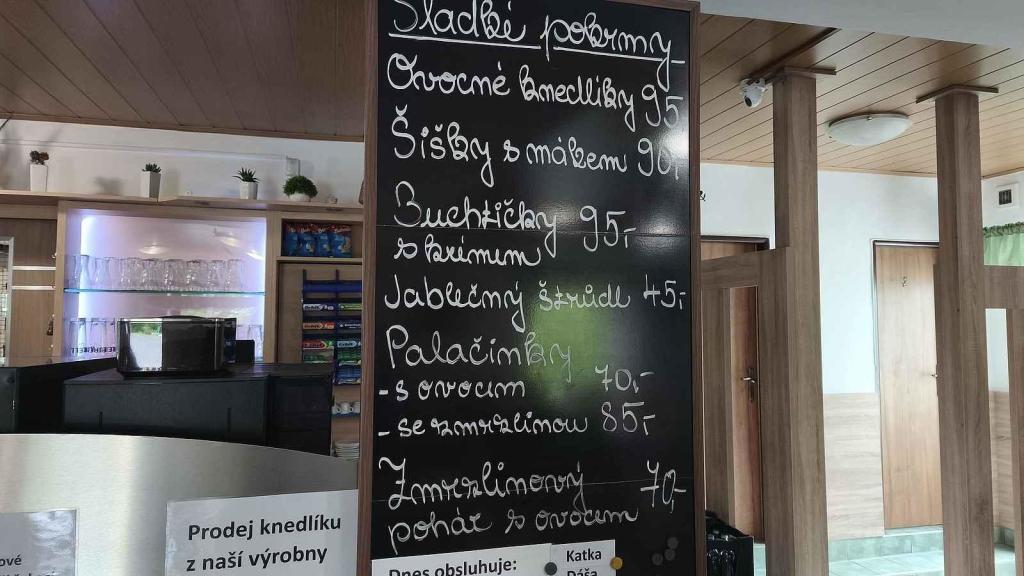 Sladké pokrmy
Ovocné knedlíky 95
Šišky s mákem 90,-
Buchtičky 95,-
s krémem
Jablečný štrůdl 45,-
Palačinky
- s ovocem 70,-
- se zmrzlinou 85,-
Zmrzlinový 70,-
pohár s ovocem
Prodej knedlíku
z naší výrobny
Dnes obsluhuje:
Katka
Dáša